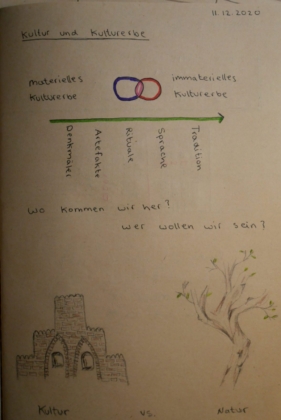 11.12.2020
Kultur und Kulturerbe
materielles
Kulturerbe
immaterielles
Kulturerbe
Denkmäler
Artefakte
Rituale
Sprache
Tradition
wo kommen wir her?
wer wollen wir sein?
Kultur vs. Natur